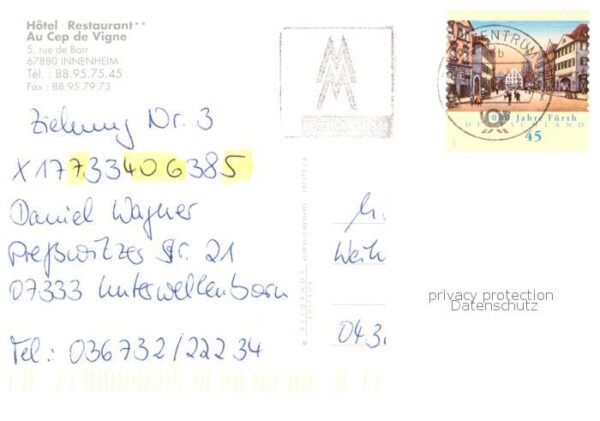 Hôtel · Restaurant**
Au Cep de Vigne
5, rue de Barr
67880 INNENHEIM
Tél. : 88.95.75.45
Fax : 88.95.79.73
1000 Jahre Fürth
DEUTSCHLAND
45
Ziehung Nr. 3
X17733406385
Daniel Wagner
Preßwitzer Str. 21
07333 Unterwellenborn
Tel.: 036732/22234
Weih
04.3.
privacy protection
Datenschutz